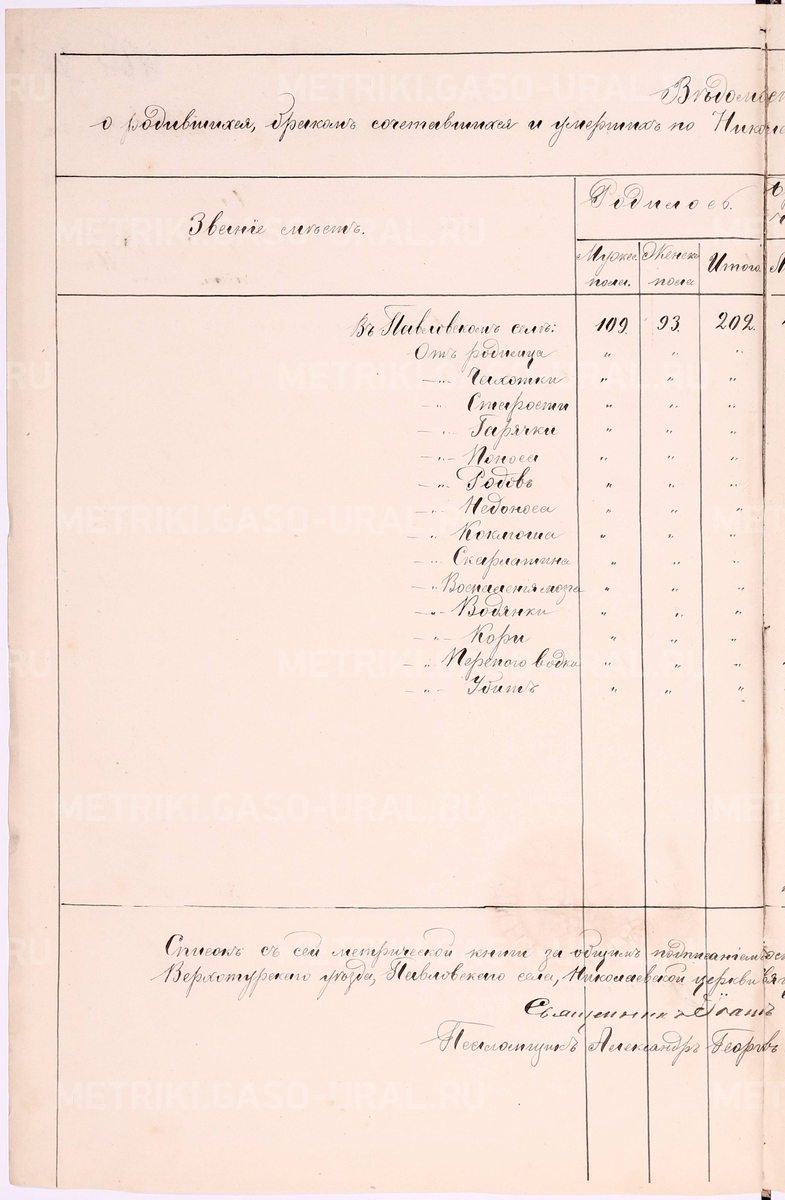 Вѣдомост
о родившихся, бракомъ сочетавшихся и умершихъ по Никола
Званіе мѣстъ.
Родилось.
Мужес. пола.
Женска пола
Итого
Въ Павловскомъ селѣ: 109. 93. 202.
Отъ родимца " " "
— " — Чахотки " " "
— " Старости " " "
— " — Гарячки " " "
— " — Поноса " " "
— " Родовъ " " "
— " Недоноса " " "
— " Коклюша " " "
— " Скарлатина " " "
— " Воспаленія мозга " " "
— " — Водянки " " "
— " — Кори " " "
— " Перепого водки " " "
— " — Убитъ " " "
Списокъ съ сей метрической книги за общимъ подписаніем
Верхотурскаго уѣзда, Павловскаго села, Николаевской церкви
Священникъ
Псаломщикъ Александръ Георгів
METRIKI.GASO-URAL.RU